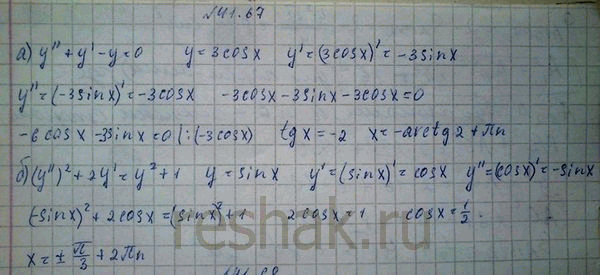 №41.67
а) y''+y'-y=0 y=3cosx y'=(3cosx)'=-3sinx
y''=(-3sinx)'=-3cosx -3cosx-3sinx-3cosx=0
-6cosx-3sinx=0 |:(-3cosx) tgx=-2 x=-arctg2+πn
б) (y'')²+2y'=y²+1 y=sinx y'=(sinx)'=cosx y''=(cosx)'=-sinx
(-sinx)²+2cosx=(sinx)²+1 2cosx=1 cosx=1/2.
x=±π/3+2πn
reshak.ru